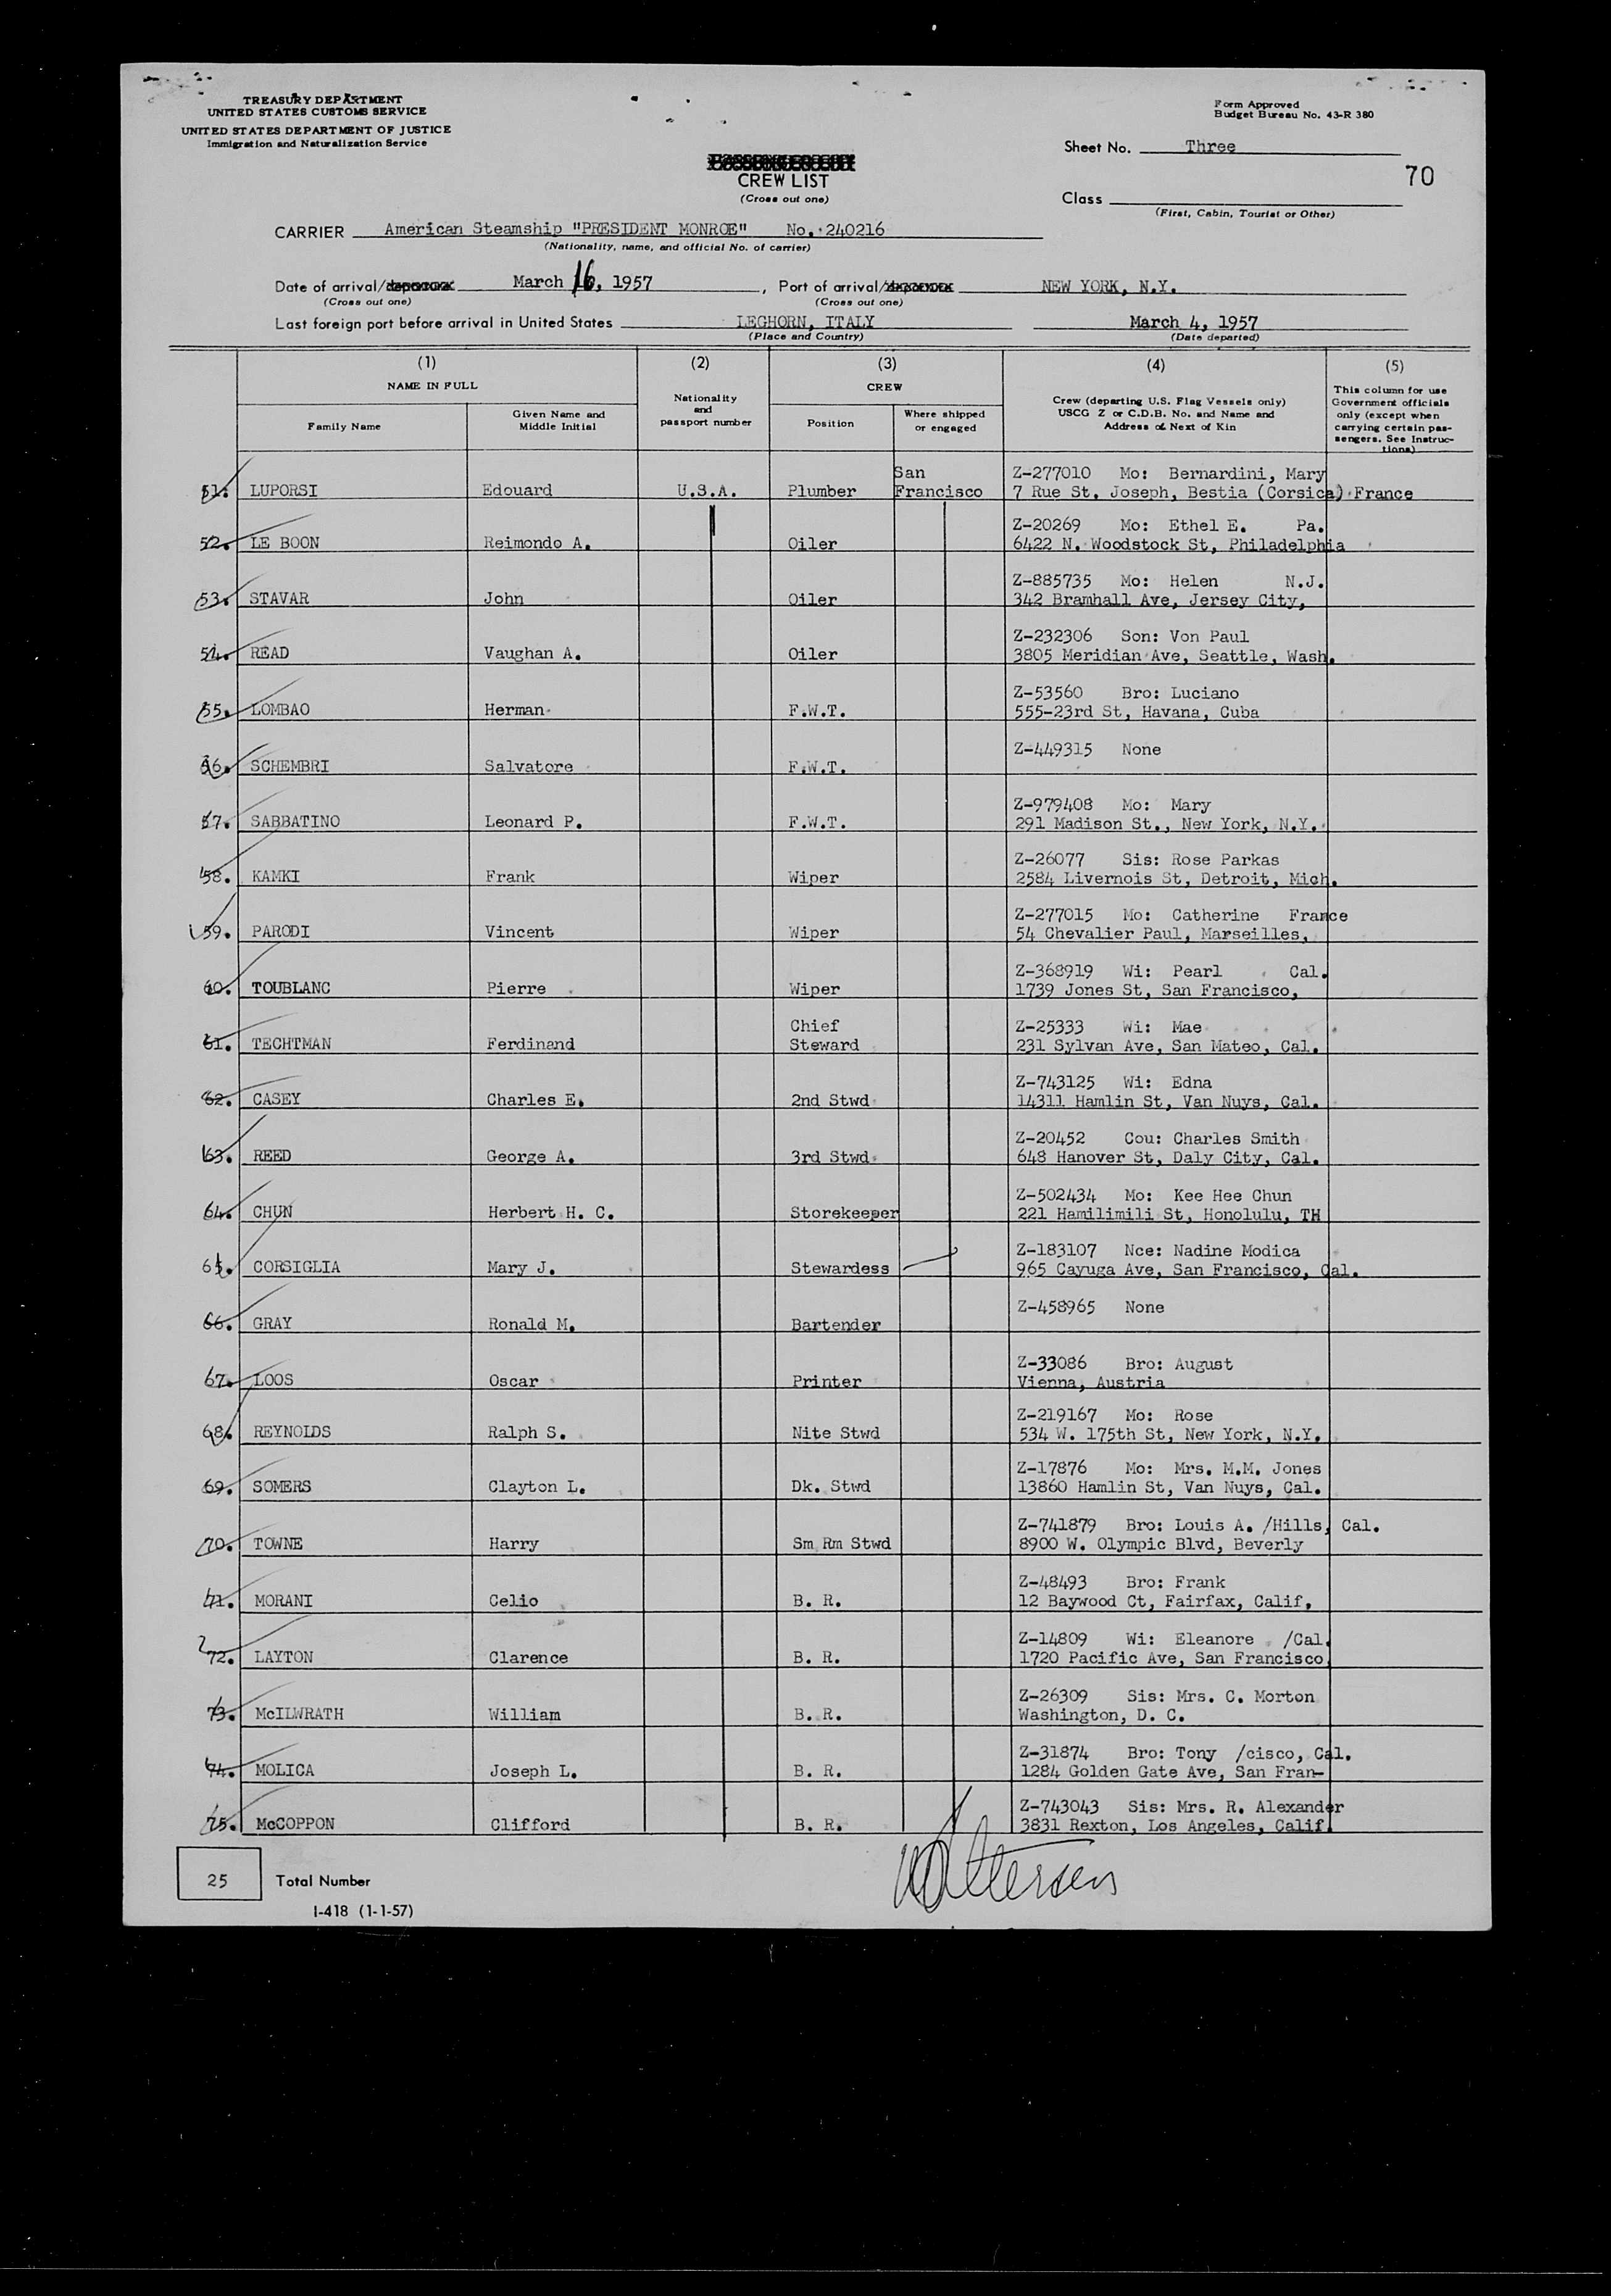 TREASURY DEPARTMENT
UNITED STATES CUSTOMS SERVICE
UNITED STATES DEPARTMENT OF JUSTICE
Immigration and Naturalization Service
Form Approved
Budget Bureau No. 43-R 380
Sheet No. Three
70
CREW LIST
(Cross out one)
Class
(First, Cabin, Tourist or Other)
CARRIER American Steamship "PRESIDENT MONROE" No. 240216
(Nationality, name, and official No. of carrier)
Date of arrival/ March 16, 1957, Port of arrival/ NEW YORK, N.Y.
(Cross out one) (Cross out one)
Last foreign port before arrival in United States LEGHORN, ITALY March 4, 1957
(Place and Country) (Date departed)
(1) (2) (3) (4) (5)
NAME IN FULL
Family Name
Given Name and
Middle Initial
Nationality
and
passport number
CREW
Position
Where shipped
or engaged
Crew (departing U.S. Flag Vessels only)
USCG Z or C.D.B. No. and Name and
Address of Next of Kin
This column for use
Government officials
only (except when
carrying certain pas-
sengers. See Instruc-
tions)
San Z-277010 Mo: Bernardini, Mary
51. LUPORSI Edouard U.S.A. Plumber Francisco 7 Rue St. Joseph, Bestia (Corsica) France
Z-20269 Mo: Ethel E. Pa.
52. LE BOON Reimondo A. Oiler 6422 N. Woodstock St, Philadelphia
Z-885735 Mo: Helen N.J.
53. STAVAR John Oiler 342 Bramhall Ave, Jersey City,
Z-232306 Son: Von Paul
54. READ Vaughan A. Oiler 3805 Meridian Ave, Seattle, Wash.
Z-53560 Bro: Luciano
55. LOMBAO Herman F.W.T. 555-23rd St, Havana, Cuba
Z-449315 None
56. SCHEMBRI Salvatore F.W.T.
Z-979408 Mo: Mary
57. SABBATINO Leonard P. F.W.T. 291 Madison St., New York, N.Y.
Z-26077 Sis: Rose Parkas
58. KAMKI Frank Wiper 2584 Livernois St, Detroit, Mich.
Z-277015 Mo: Catherine France
59. PARODI Vincent Wiper 54 Chevalier Paul, Marseilles,
Z-368919 Wi: Pearl Cal.
60. TOUBLANC Pierre Wiper 1739 Jones St, San Francisco,
Chief Z-25333 Wi: Mae
61. TECHTMAN Ferdinand Steward 231 Sylvan Ave, San Mateo, Cal.
Z-743125 Wi: Edna
62. CASEY Charles E. 2nd Stwd 14311 Hamlin St, Van Nuys, Cal.
Z-20452 Cou: Charles Smith
63. REED George A. 3rd Stwd 648 Hanover St, Daly City, Cal.
Z-502434 Mo: Kee Hee Chun
64. CHUN Herbert H. C. Storekeeper 221 Hamilimili St, Honolulu, TH
Z-183107 Nce: Nadine Modica
65. CORSIGLIA Mary J. Stewardess 965 Cayuga Ave, San Francisco, Cal.
Z-458965 None
66. GRAY Ronald M. Bartender
Z-33086 Bro: August
67. LOOS Oscar Printer Vienna, Austria
Z-219167 Mo: Rose
68. REYNOLDS Ralph S. Nite Stwd 534 W. 175th St, New York, N.Y.
Z-17876 Mo: Mrs. M.M. Jones
69. SOMERS Clayton L. Dk. Stwd 13860 Hamlin St, Van Nuys, Cal.
Z-741879 Bro: Louis A. /Hills, Cal.
70. TOWNE Harry Sm Rm Stwd 8900 W. Olympic Blvd, Beverly
Z-48493 Bro: Frank
71. MORANI Celio B. R. 12 Baywood Ct, Fairfax, Calif.
Z-14809 Wi: Eleanore /Cal.
72. LAYTON Clarence B. R. 1720 Pacific Ave, San Francisco
Z-26309 Sis: Mrs. C. Morton
73. McILWRATH William B. R. Washington, D. C.
Z-31874 Bro: Tony /cisco, Cal.
74. MOLICA Joseph L. B. R. 1284 Golden Gate Ave, San Fran-
Z-743043 Sis: Mrs. R. Alexander
75. McCOPPON Clifford B. R. 3831 Rexton, Los Angeles, Calif.
25 Total Number
I-418 (1-1-57)